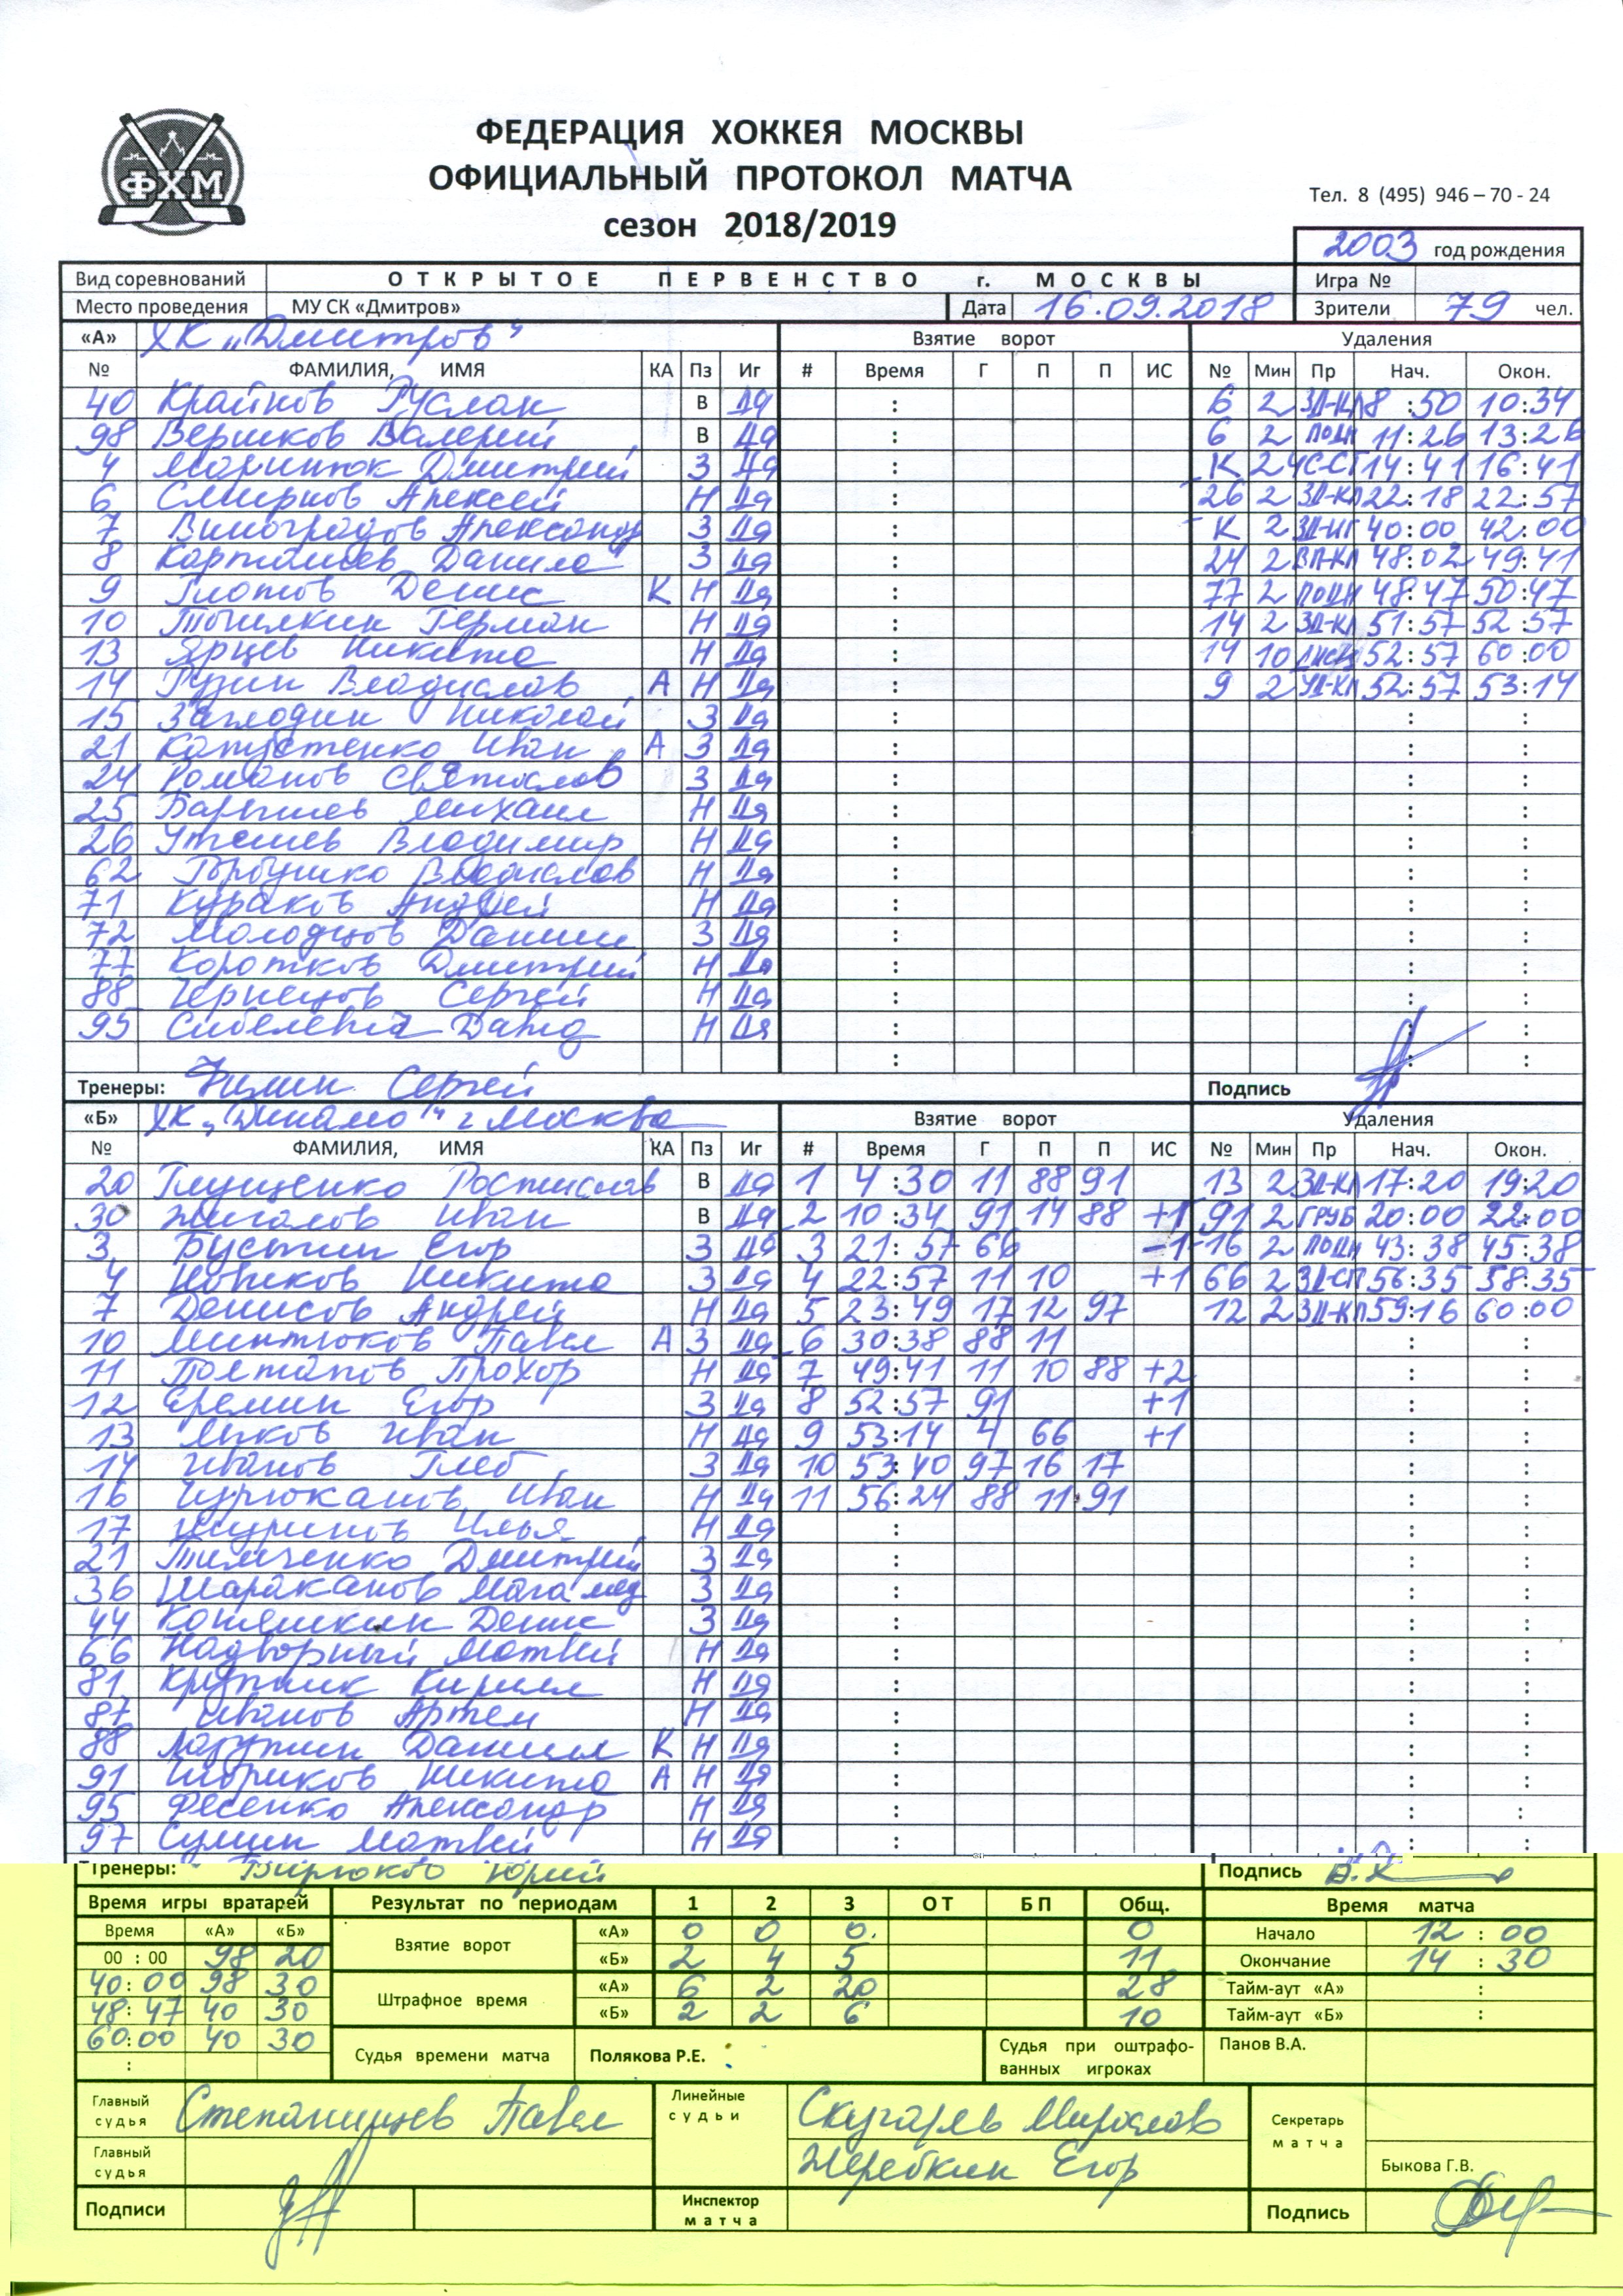 ФЕДЕРАЦИЯ ХОККЕЯ МОСКВЫ
ОФИЦИАЛЬНЫЙ ПРОТОКОЛ МАТЧА
сезон 2018/2019
ФХМ
Тел. 8 (495) 946 – 70 - 24
2003 год рождения
Вид соревнований ОТКРЫТОЕ ПЕРВЕНСТВО г. МОСКВЫ Игра №
Место проведения МУ СК «Дмитров» Дата 16.09.2018 Зрители 79 чел.
«А» ХК „Дмитров" Взятие ворот Удаления
№ ФАМИЛИЯ, ИМЯ КА Пз Иг # Время Г П П ИС № Мин Пр Нач. Окон.
40 Крайнов Руслан В да : 6 2 ЗД-КЛ 8:50 10:34
98 Вершков Валерий В да : 6 2 ПОДН 11:26 13:26
4 Маринюк Дмитрий З да : К 2 14:41 16:41
6 Смирнов Алексей Н да : 26 2 ЗД-КЛ 22:18 22:57
7 Виноградов Александр З да : К 2 ЗД-ИГ 40:00 42:00
8 Карташев Данила З да : 24 2 ВП-КЛ 48:02 49:41
9 Глотов Денис К Н да : 77 2 ПОДН 48:47 50:47
10 Тычилкин Герман Н да : 14 2 ЗД-КЛ 51:57 52:57
13 Ярцев Никита Н да : 14 10 ДИСЦ 52:57 60:00
14 Рузин Владислав А Н да : 9 2 УД-КЛ 52:57 53:14
15 Загладин Николай З да : : :
21 Капустенко Иван А З да : : :
24 Романов Святослав З да : : :
25 Барышев Михаил Н да : : :
26 Утешев Владимир Н да : : :
62 Владислав Н да : : :
71 Кураков Андрей Н да : : :
72 Молодцов Даниил З да : : :
77 Коротков Дмитрий Н да : : :
88 Чернецов Сергей Н да : : :
95 Давид Н да : : :
: : :
Тренеры: Сергей Подпись
«Б» ХК „Динамо" г Москва Взятие ворот Удаления
№ ФАМИЛИЯ, ИМЯ КА Пз Иг # Время Г П П ИС № Мин Пр Нач. Окон.
20 Глущенко Ростислав В да 1 4:30 11 88 91 13 2 ЗД-КЛ 17:20 19:20
30 Жигалов Иван В да 2 10:34 91 14 88 +1 91 2 ГРУБ 20:00 22:00
3 Бусыгин Егор З да 3 21:57 66 -1 16 2 ПОДН 43:38 45:38
4 Новиков Никита З да 4 22:57 11 10 +1 66 2 ЗД-СП 56:35 58:35
7 Денисов Андрей Н да 5 23:49 17 12 97 12 2 ЗД-КЛ 59:16 60:00
10 Минтюков Павел А З да 6 30:38 88 11 : :
11 Полтапов Прохор Н да 7 49:41 11 10 88 +2 : :
12 Еремин Егор З да 8 52:57 91 +1 : :
13 Иван Н да 9 53:14 4 66 +1 : :
14 Иванов Глеб З да 10 53:40 97 16 17 : :
16 Чурюканов Иван Н да 11 56:24 88 11 91 : :
17 Шуринов Илья Н да : : :
21 Тимченко Дмитрий З да : : :
36 Шараканов Магамед З да : : :
44 Котяшкин Денис З да : : :
66 Надворный Матвей Н да : : :
81 Крупник Кирилл Н да : : :
87 Иванов Артем Н да : : :
88 Лазутин Даниил К Н да : : :
91 Никита А Н да : : :
95 Фесенко Александр Н да : : :
97 Сумин Матвей Н да : : :
Тренеры: Бирюков Юрий Подпись
Время игры вратарей Результат по периодам 1 2 3 ОТ БП Общ. Время матча
Время «А» «Б» Взятие ворот «А» 0 0 0 0 Начало 12 : 00
00 : 00 98 20 «Б» 2 4 5 11 Окончание 14 : 30
40:00 98 30 Штрафное время «А» 6 2 20 28 Тайм-аут «А» :
48:47 40 30 «Б» 2 2 6 10 Тайм-аут «Б» :
60:00 40 30 Судья времени матча Полякова Р.Е. Судья при оштрафо-ванных игроках Панов В.А.
:
Главный судья Степанищев Павел Линейные судьи Скугарев Мирослав Секретарь матча
Главный судья Жеребкин Егор Быкова Г.В.
Подписи Инспектор матча Подпись